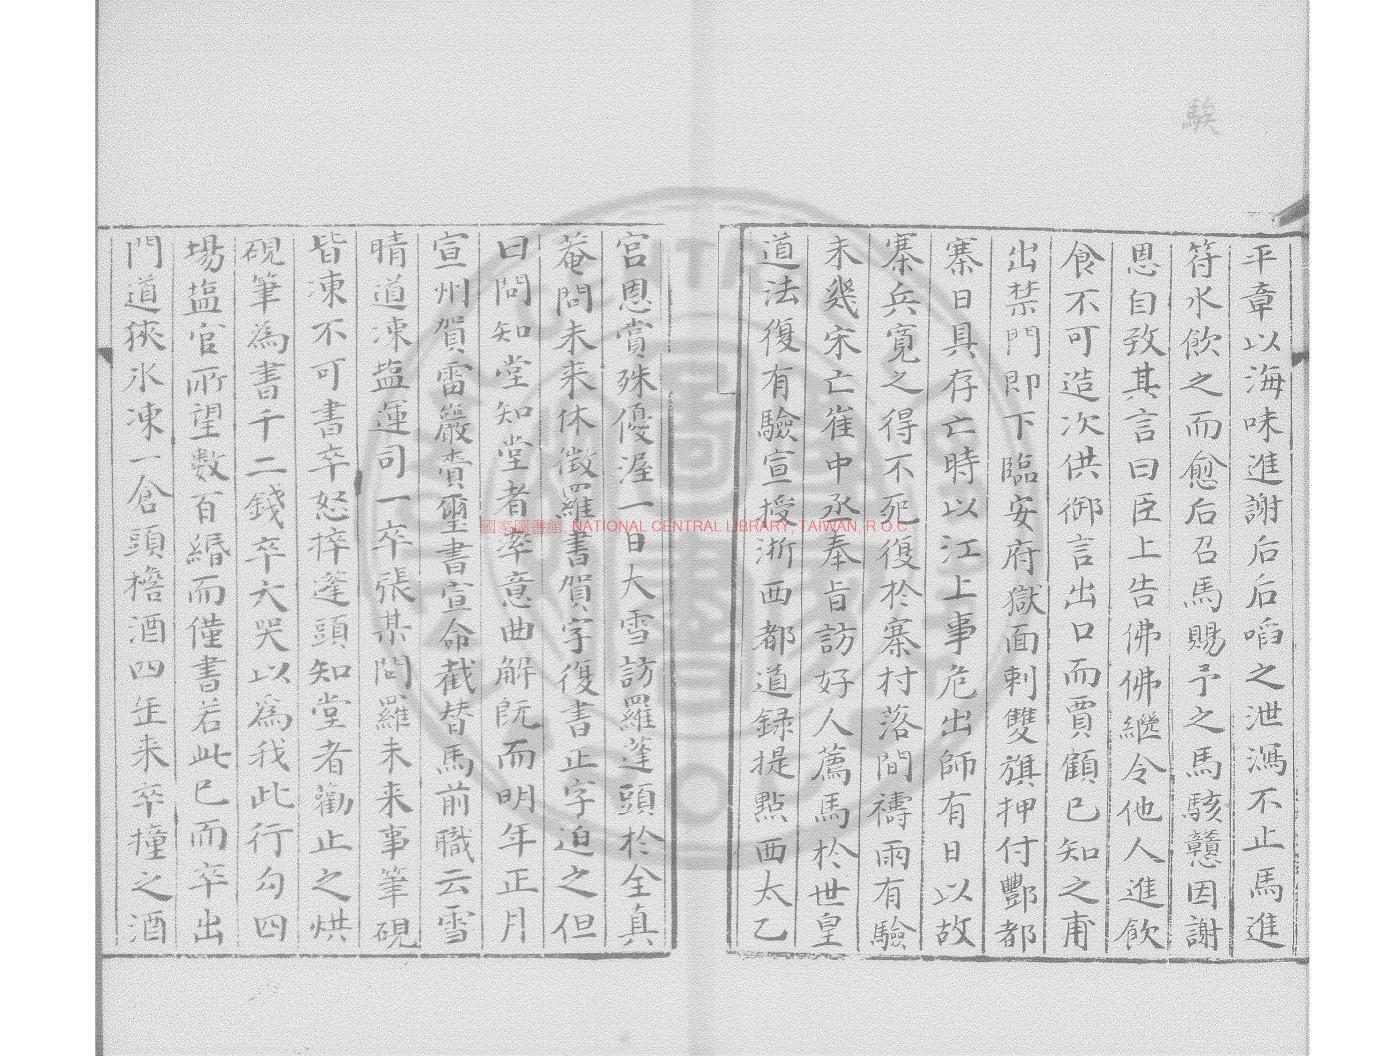 騃
平章以海味進謝后后啗之泄瀉不止馬進
符水飲之而愈后召馬賜予之馬駭戇因謝
恩自致其言曰臣上告佛佛繼令他人進飲
食不可造次供御言出口而賈顧已知之甫
出禁門即下臨安府獄面刺雙旗押付酆都
寨日具存亡時以江上事危出師有日以故
寨兵寬之得不死復於寨村落間禱雨有驗
未幾宋亡崔中丞奉旨訪好人薦馬於世皇
道法復有驗宣授浙西都道録提點西太乙
宮恩賞殊優渥一日大雪訪羅蓬頭於全真
菴問未來休徵羅書賀字復書正字迫之但
曰問知堂知堂者率意曲解既而明年正月
宣州賀雷巖賫璽書宣命截替馬前職云雪
晴道凍塩運司一卒張某問羅未来事筆硯
皆凍不可書卒怒捽蓬頭知堂者勸止之烘
硯筆為書千二錢卒大哭以為我此行勾四
場塩官所望数百緡而僅書若此已而卒出
門道狹氷凍一倉頭擔酒四缶来卒撞之酒
國家圖書館, NATIONAL CENTRAL LIBRARY, TAIWAN, R.O.C